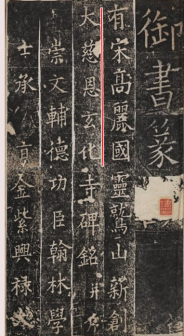 御書篆
有宋高麗國靈鷲山新創
大慈恩玄化寺碑銘并
崇文輔德功臣翰林學
士承旨金紫興祿